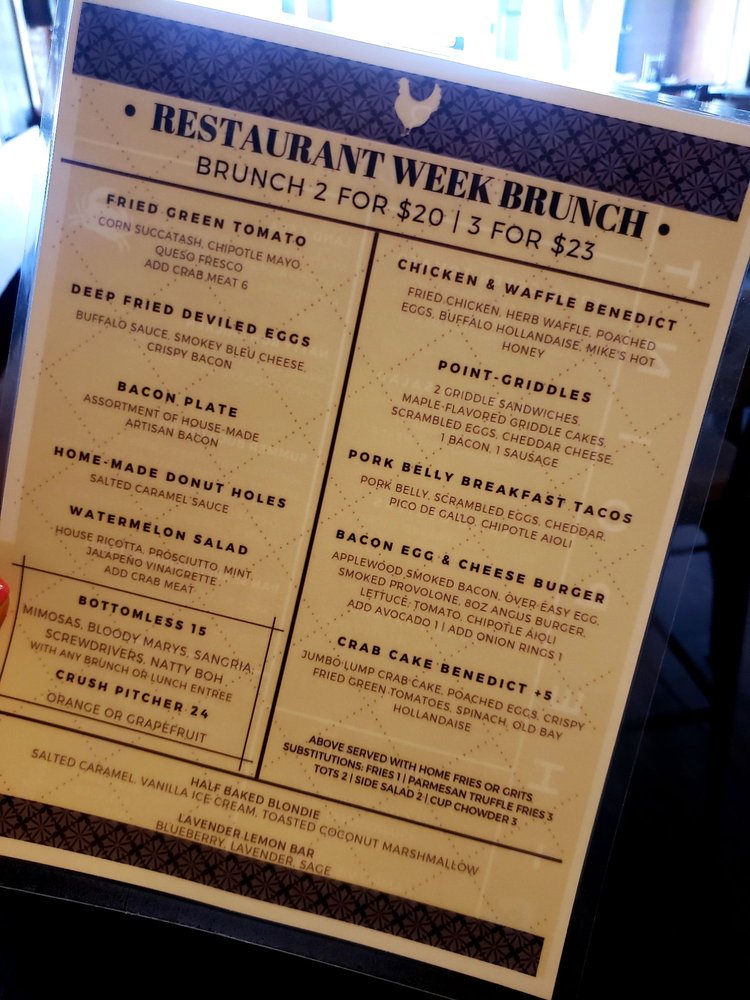 • RESTAURANT WEEK BRUNCH •
BRUNCH 2 FOR $20 | 3 FOR $23
FRIED GREEN TOMATO
CORN SUCCATASH, CHIPOTLE MAYO,
QUESO FRESCO
ADD CRAB MEAT 6
DEEP FRIED DEVILED EGGS
BUFFALO SAUCE, SMOKEY BLEU CHEESE,
CRISPY BACON
BACON PLATE
ASSORTMENT OF HOUSE-MADE
ARTISAN BACON
HOME-MADE DONUT HOLES
SALTED CARAMEL SAUCE
WATERMELON SALAD
HOUSE RICOTTA, PROSCIUTTO, MINT,
JALAPEÑO VINAIGRETTE
ADD CRAB MEAT
BOTTOMLESS 15
MIMOSAS, BLOODY MARYS, SANGRIA,
SCREWDRIVERS, NATTY BOH
WITH ANY BRUNCH OR LUNCH ENTREE
CRUSH PITCHER 24
ORANGE OR GRAPEFRUIT
CHICKEN & WAFFLE BENEDICT
FRIED CHICKEN, HERB WAFFLE, POACHED
EGGS, BUFFALO HOLLANDAISE, MIKE'S HOT
HONEY
POINT-GRIDDLES
2 GRIDDLE SANDWICHES,
MAPLE-FLAVORED GRIDDLE CAKES,
SCRAMBLED EGGS, CHEDDAR CHEESE,
1 BACON, 1 SAUSAGE
PORK BELLY BREAKFAST TACOS
PORK BELLY, SCRAMBLED EGGS, CHEDDAR,
PICO DE GALLO, CHIPOTLE AIOLI
BACON EGG & CHEESE BURGER
APPLEWOOD SMOKED BACON, OVER EASY EGG,
SMOKED PROVOLONE, 8OZ ANGUS BURGER,
LETTUCE, TOMATO, CHIPOTLE AIOLI
ADD AVOCADO 1 | ADD ONION RINGS 1
CRAB CAKE BENEDICT +5
JUMBO LUMP CRAB CAKE, POACHED EGGS, CRISPY
FRIED GREEN TOMATOES, SPINACH, OLD BAY
HOLLANDAISE
ABOVE SERVED WITH HOME FRIES OR GRITS
SUBSTITUTIONS: FRIES 1 | PARMESAN TRUFFLE FRIES 3
TOTS 2 | SIDE SALAD 2 | CUP CHOWDER 3
HALF BAKED BLONDIE
SALTED CARAMEL, VANILLA ICE CREAM, TOASTED COCONUT MARSHMALLOW
LAVENDER LEMON BAR
BLUEBERRY, LAVENDER, SAGE